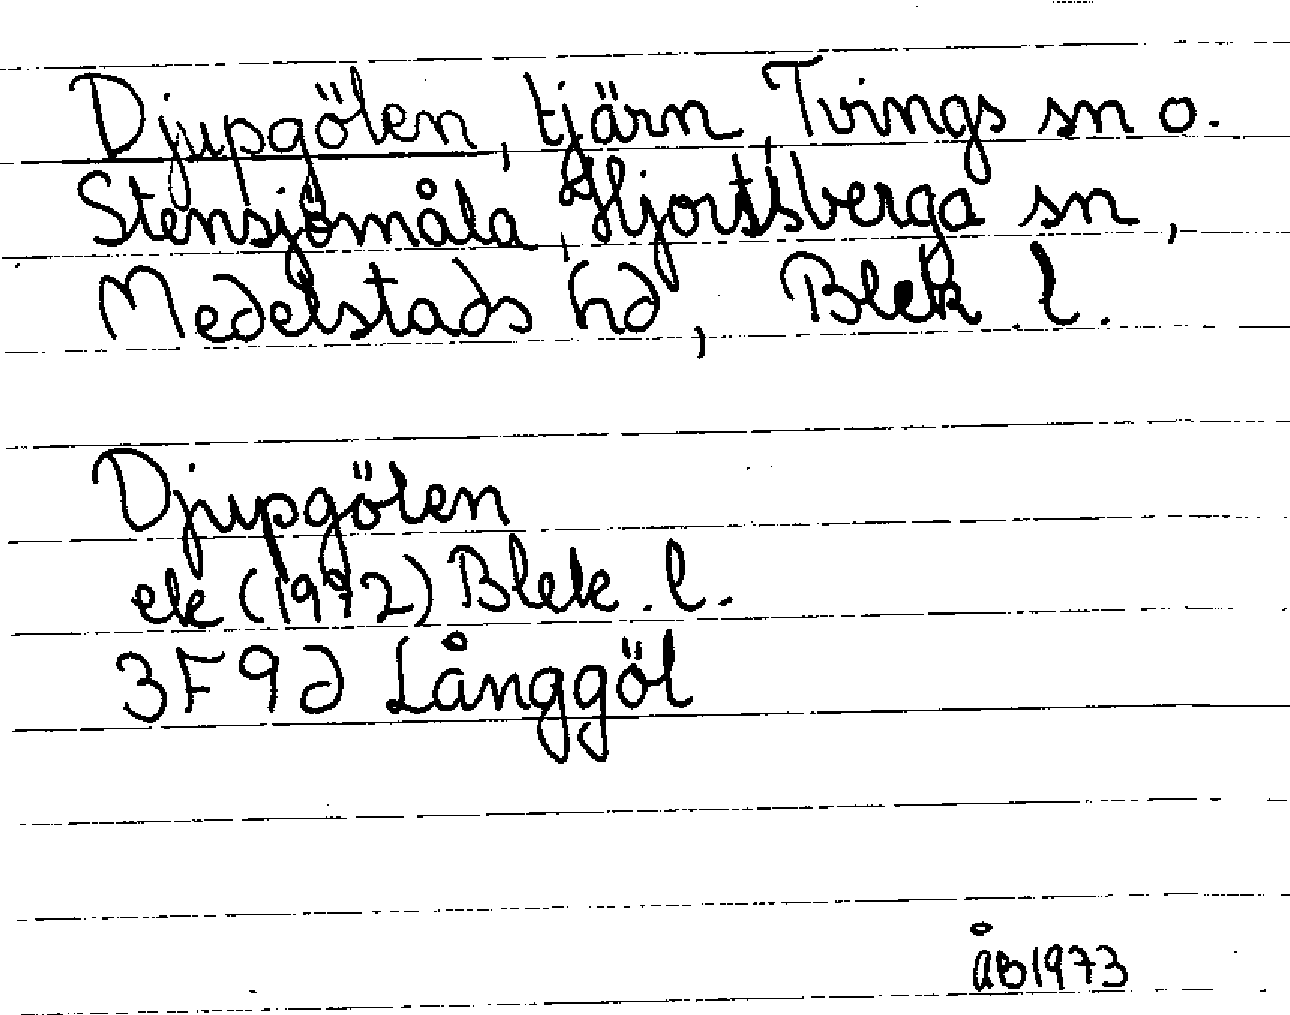 Djupgölen, tjärn, Tvings sn o.
Stensjömåla, Hjortsberga sn,
Medelstads hd, Blek l.
Djupgölen
ek (1972) Blek. l.
3F9d Långgöl
åB1973